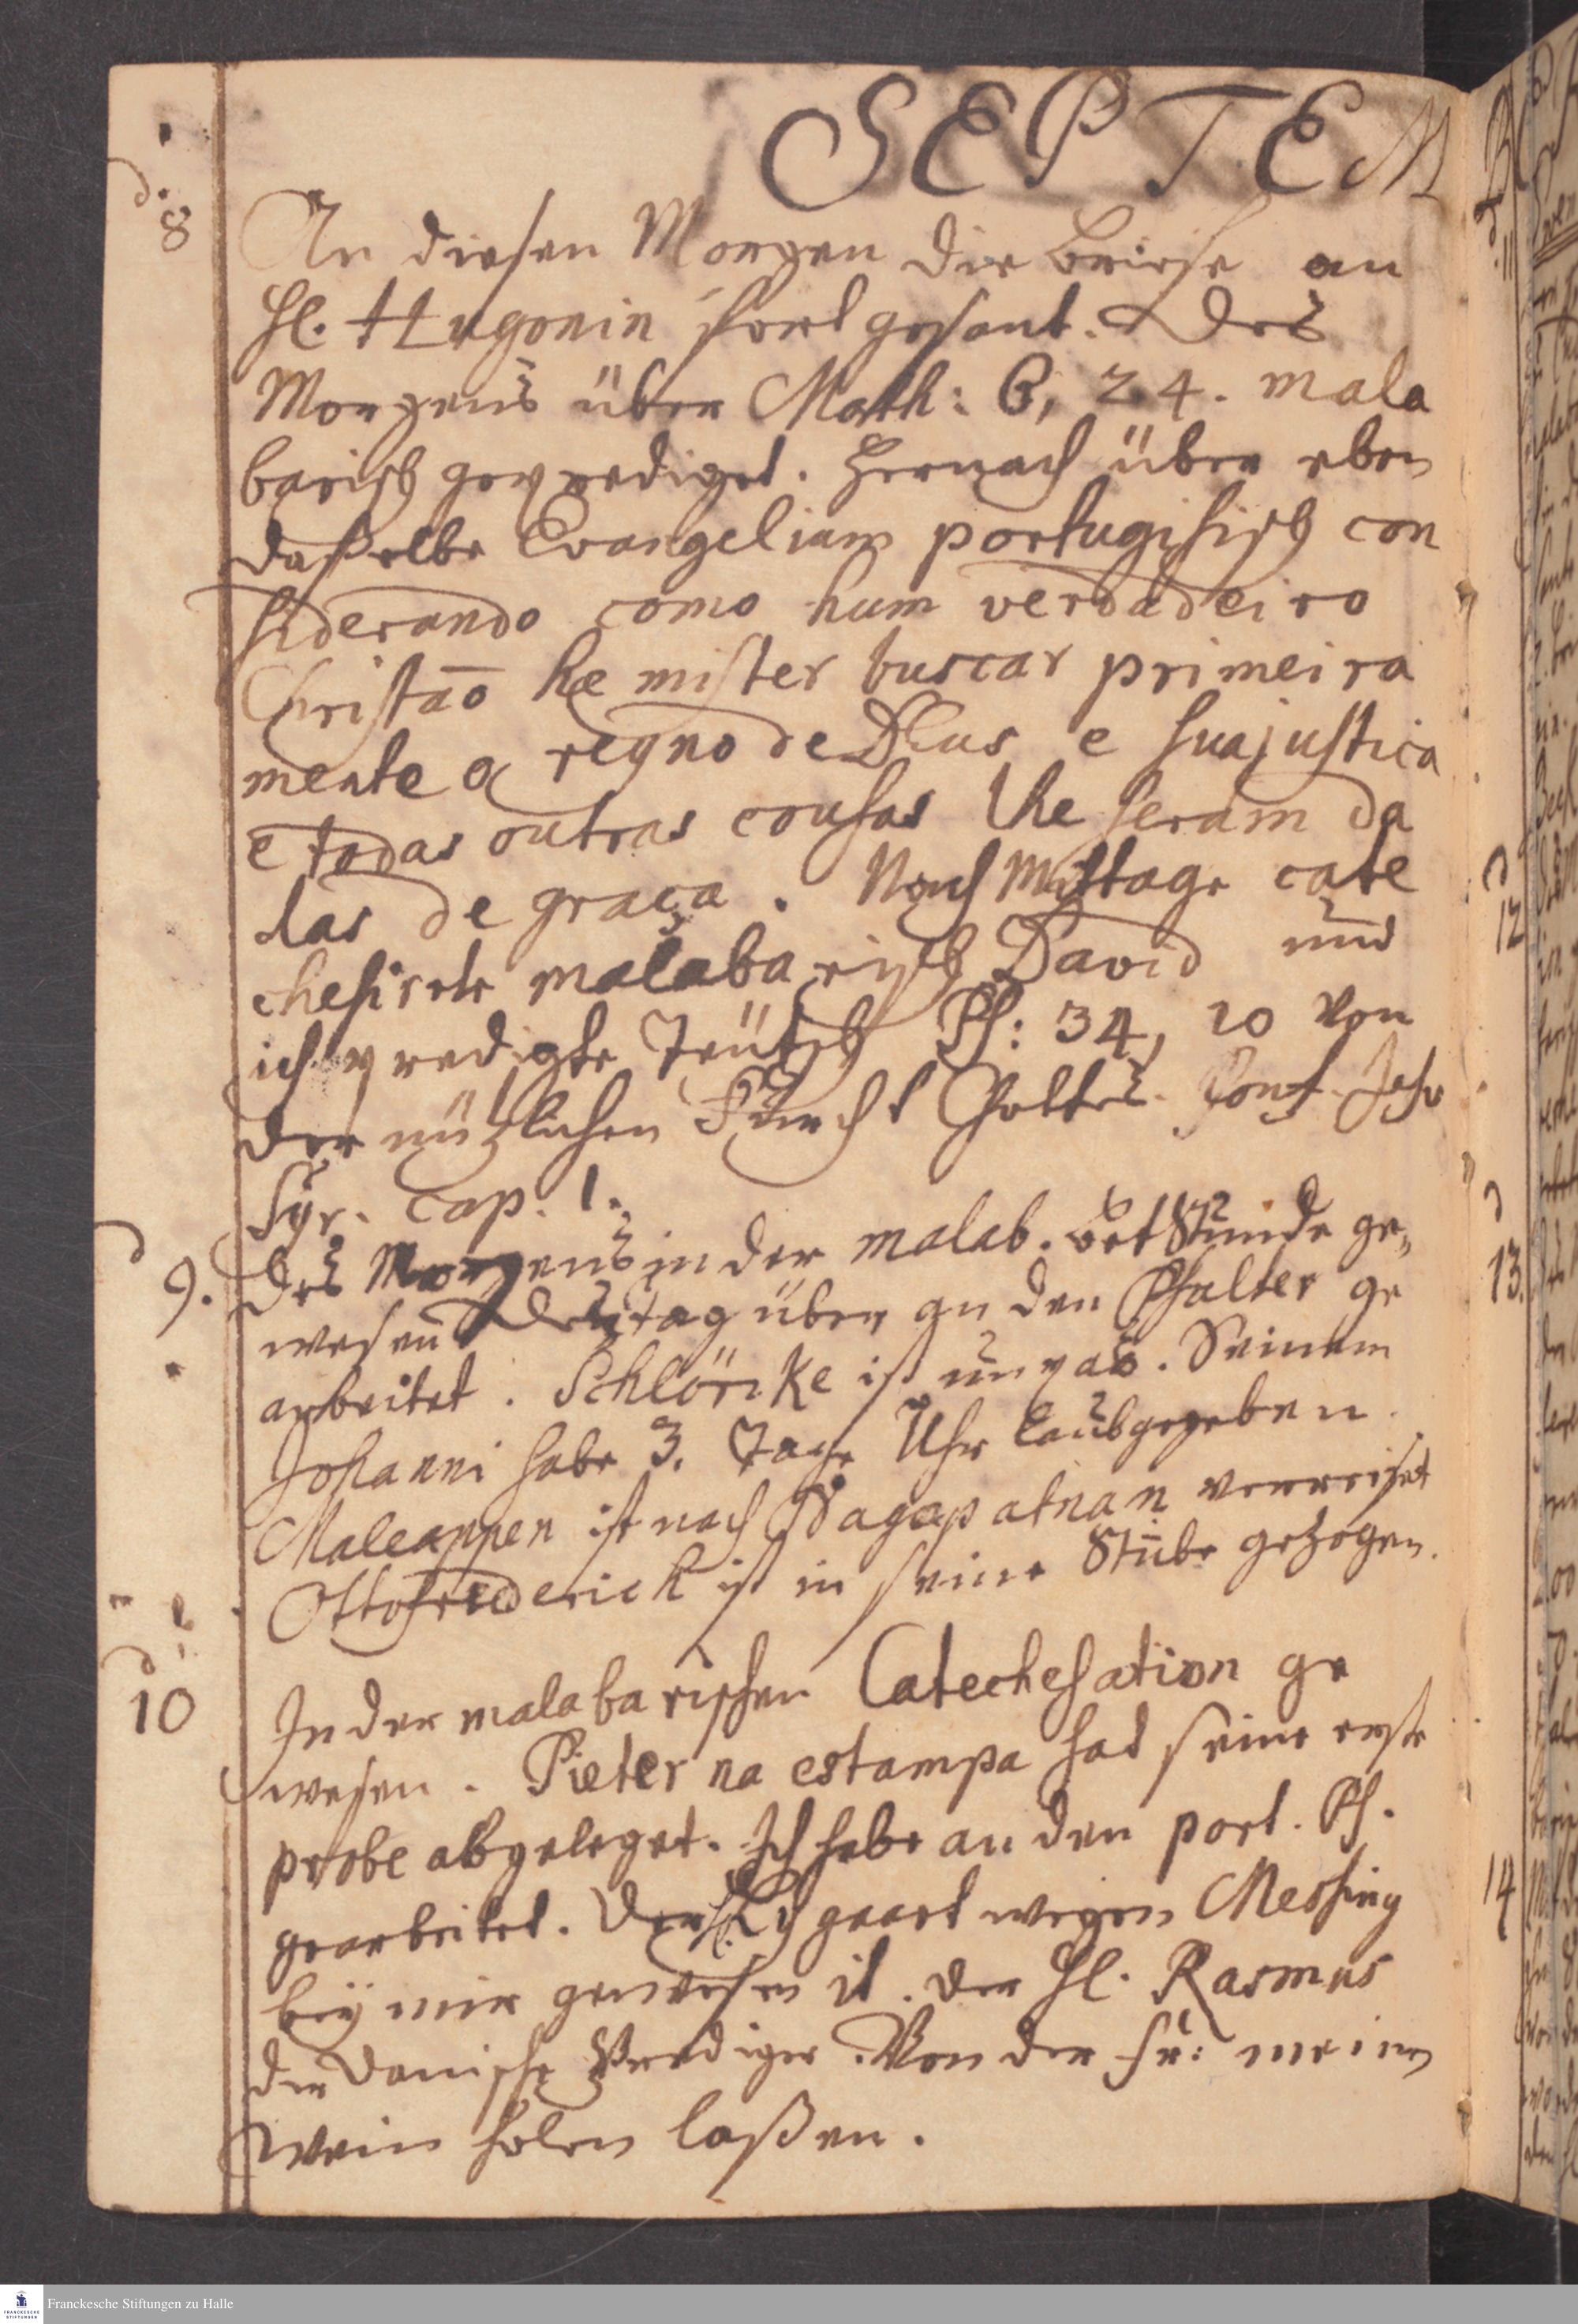 SEPTEM
d. 8
An diesen Morgen die Briefe an
Hl. Hugonin fort gesant. Des
Morgens über Math: 6, 24. mala
barisch geprediget. Hernach über eben
daßelbe Evangelium portugisisch con
siderando como hum verdadeiro
Christaõ he mister buscar primeira
mente o regno de Deus e sua justica
e todas outras cousas lhe seram da
das de graça. Nach Mittage cate
chesirete malabarisch David und
ich predigte Teütsch Ps: 34, 10 von
der nützlichen Furcht Gottes. Conf. Jesu
Syr. cap. 1.
d 9. Des Morgens in der malab. betstunde ge,
wesen Den tag über an den Psalter ge
arbeitet. Schlöricke ist unpas. Seinem
Johanni habe 3. Tage Uhrlaub gegeben.
Maleappen ist nach Nagapatnan verreiset
Ottofriederich ist in seine Stube gezogen.
d 10 In der malabarischen Catechesation ge
wesen. Pieter na estampa hat seine erste
probe abgeleget. Ich habe an den port. Ps.
gearbeitet. Der wegen Messing
bey mir gewesen it. der Hl. Rasmus
der Danische Prediger. Von der Fr: meinen
Wein holen laßen.